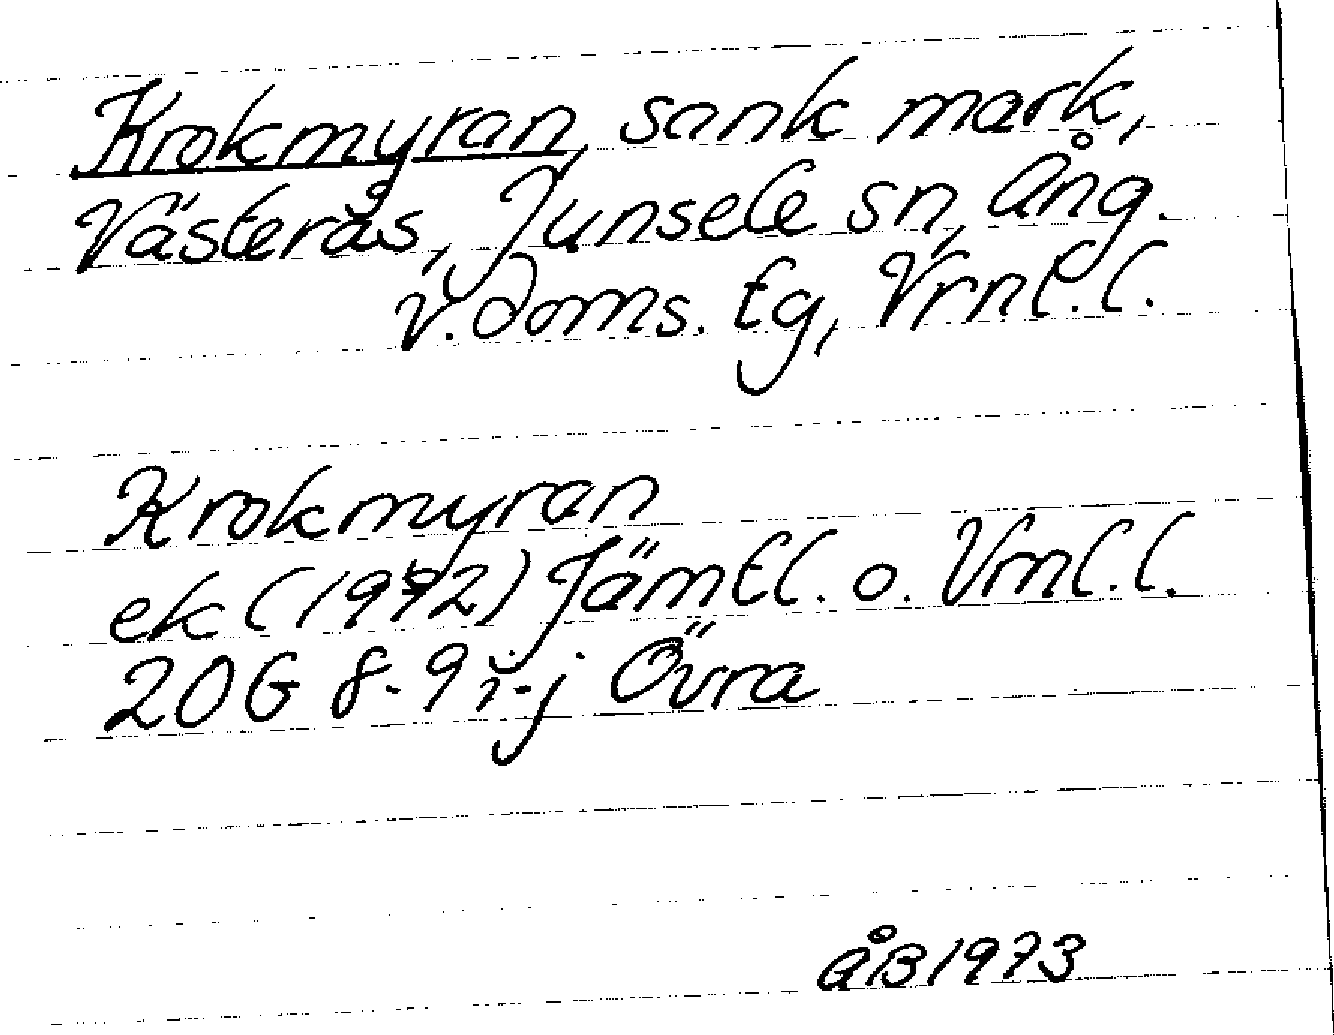 Krokmyran, sank mark,
Västerås, Junsele sn, Ång.
V. doms. tg, Vrnl. l.
Krokmyran
ek (1972) Jämtl. o. Vrnl. l.
20G 8-9 i-j Övra
ÅB 1973